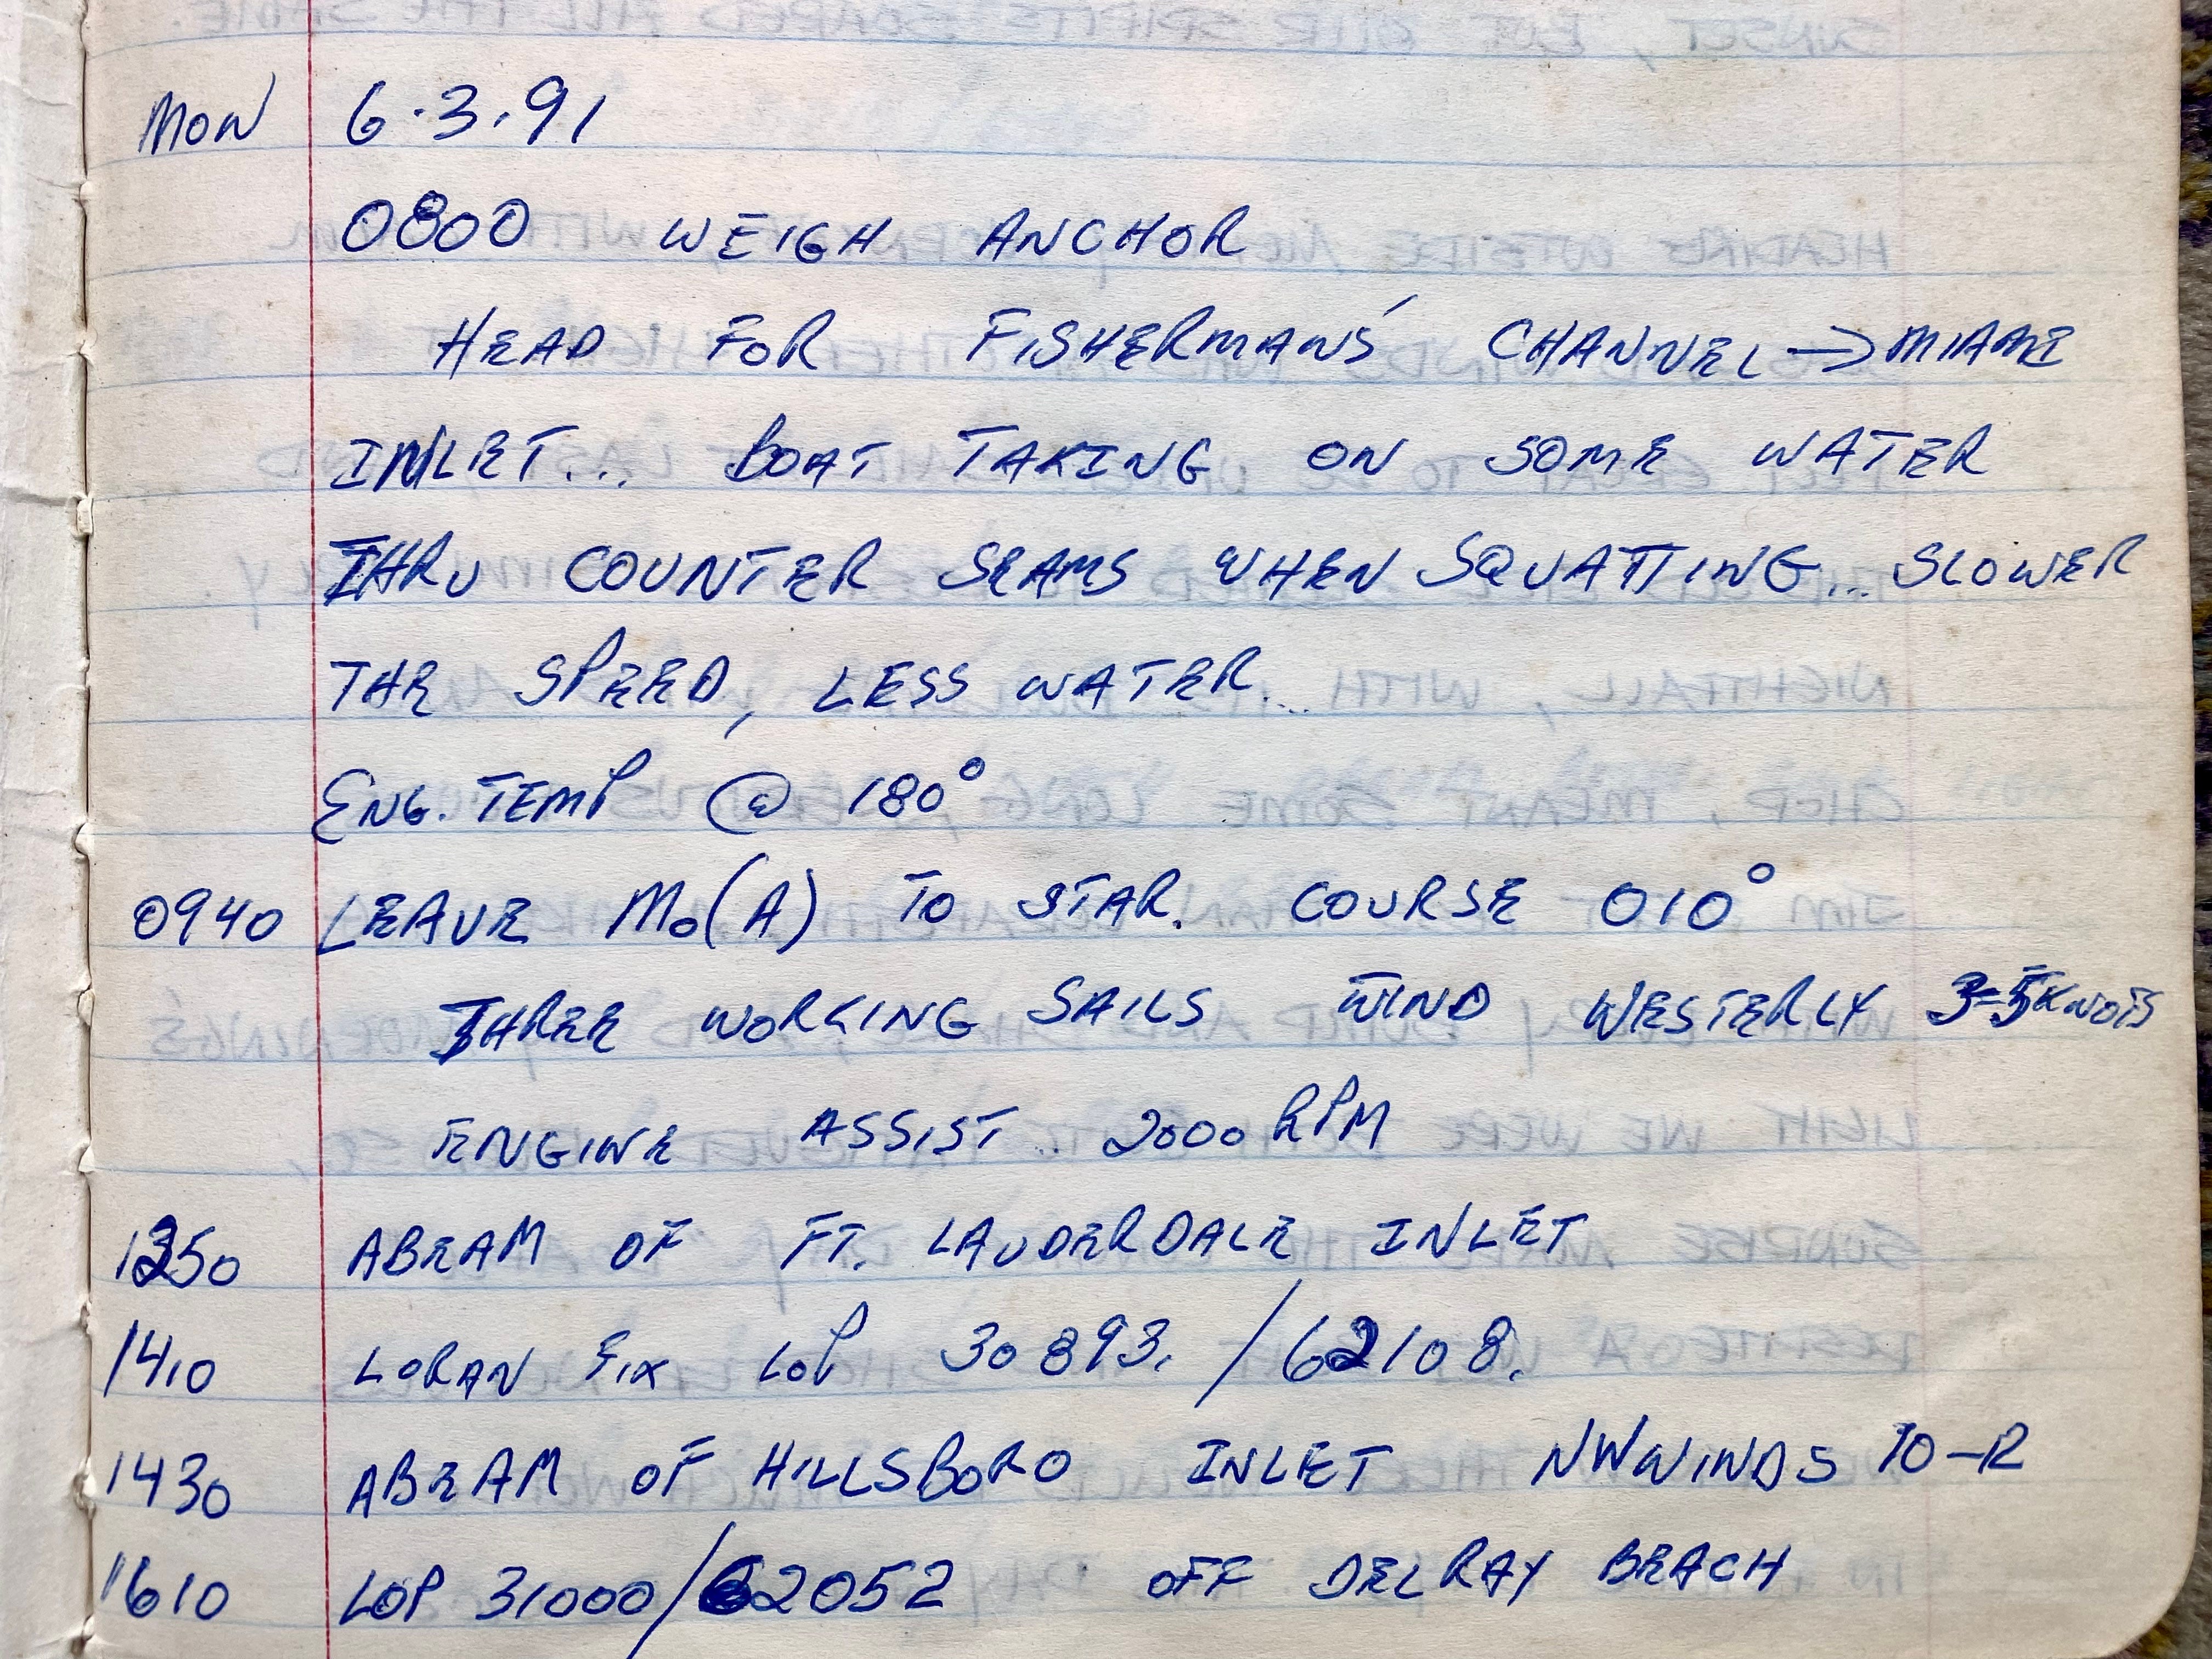 MON 6.3.91
0800 WEIGH ANCHOR
HEAD FOR FISHERMAN'S CHANNEL → MIAMI
INLET... BOAT TAKING ON SOME WATER
THRU COUNTER SEAMS WHEN SQUATTING... SLOWER
THE SPEED, LESS WATER...
ENG. TEMP @ 180°
0940 LEAVE Mo(A) TO STAR. COURSE 010°
THREE WORKING SAILS WIND WESTERLY 3-5 KNOTS
ENGINE ASSIST .. 2000 RPM
1250 ABEAM OF FT. LAUDERDALE INLET
1410 LORAN FIX LOP 30893. / 62108.
1430 ABEAM OF HILLSBORO INLET NW WINDS 10-12
1610 LOP 31000/62052 OFF DELRAY BEACH